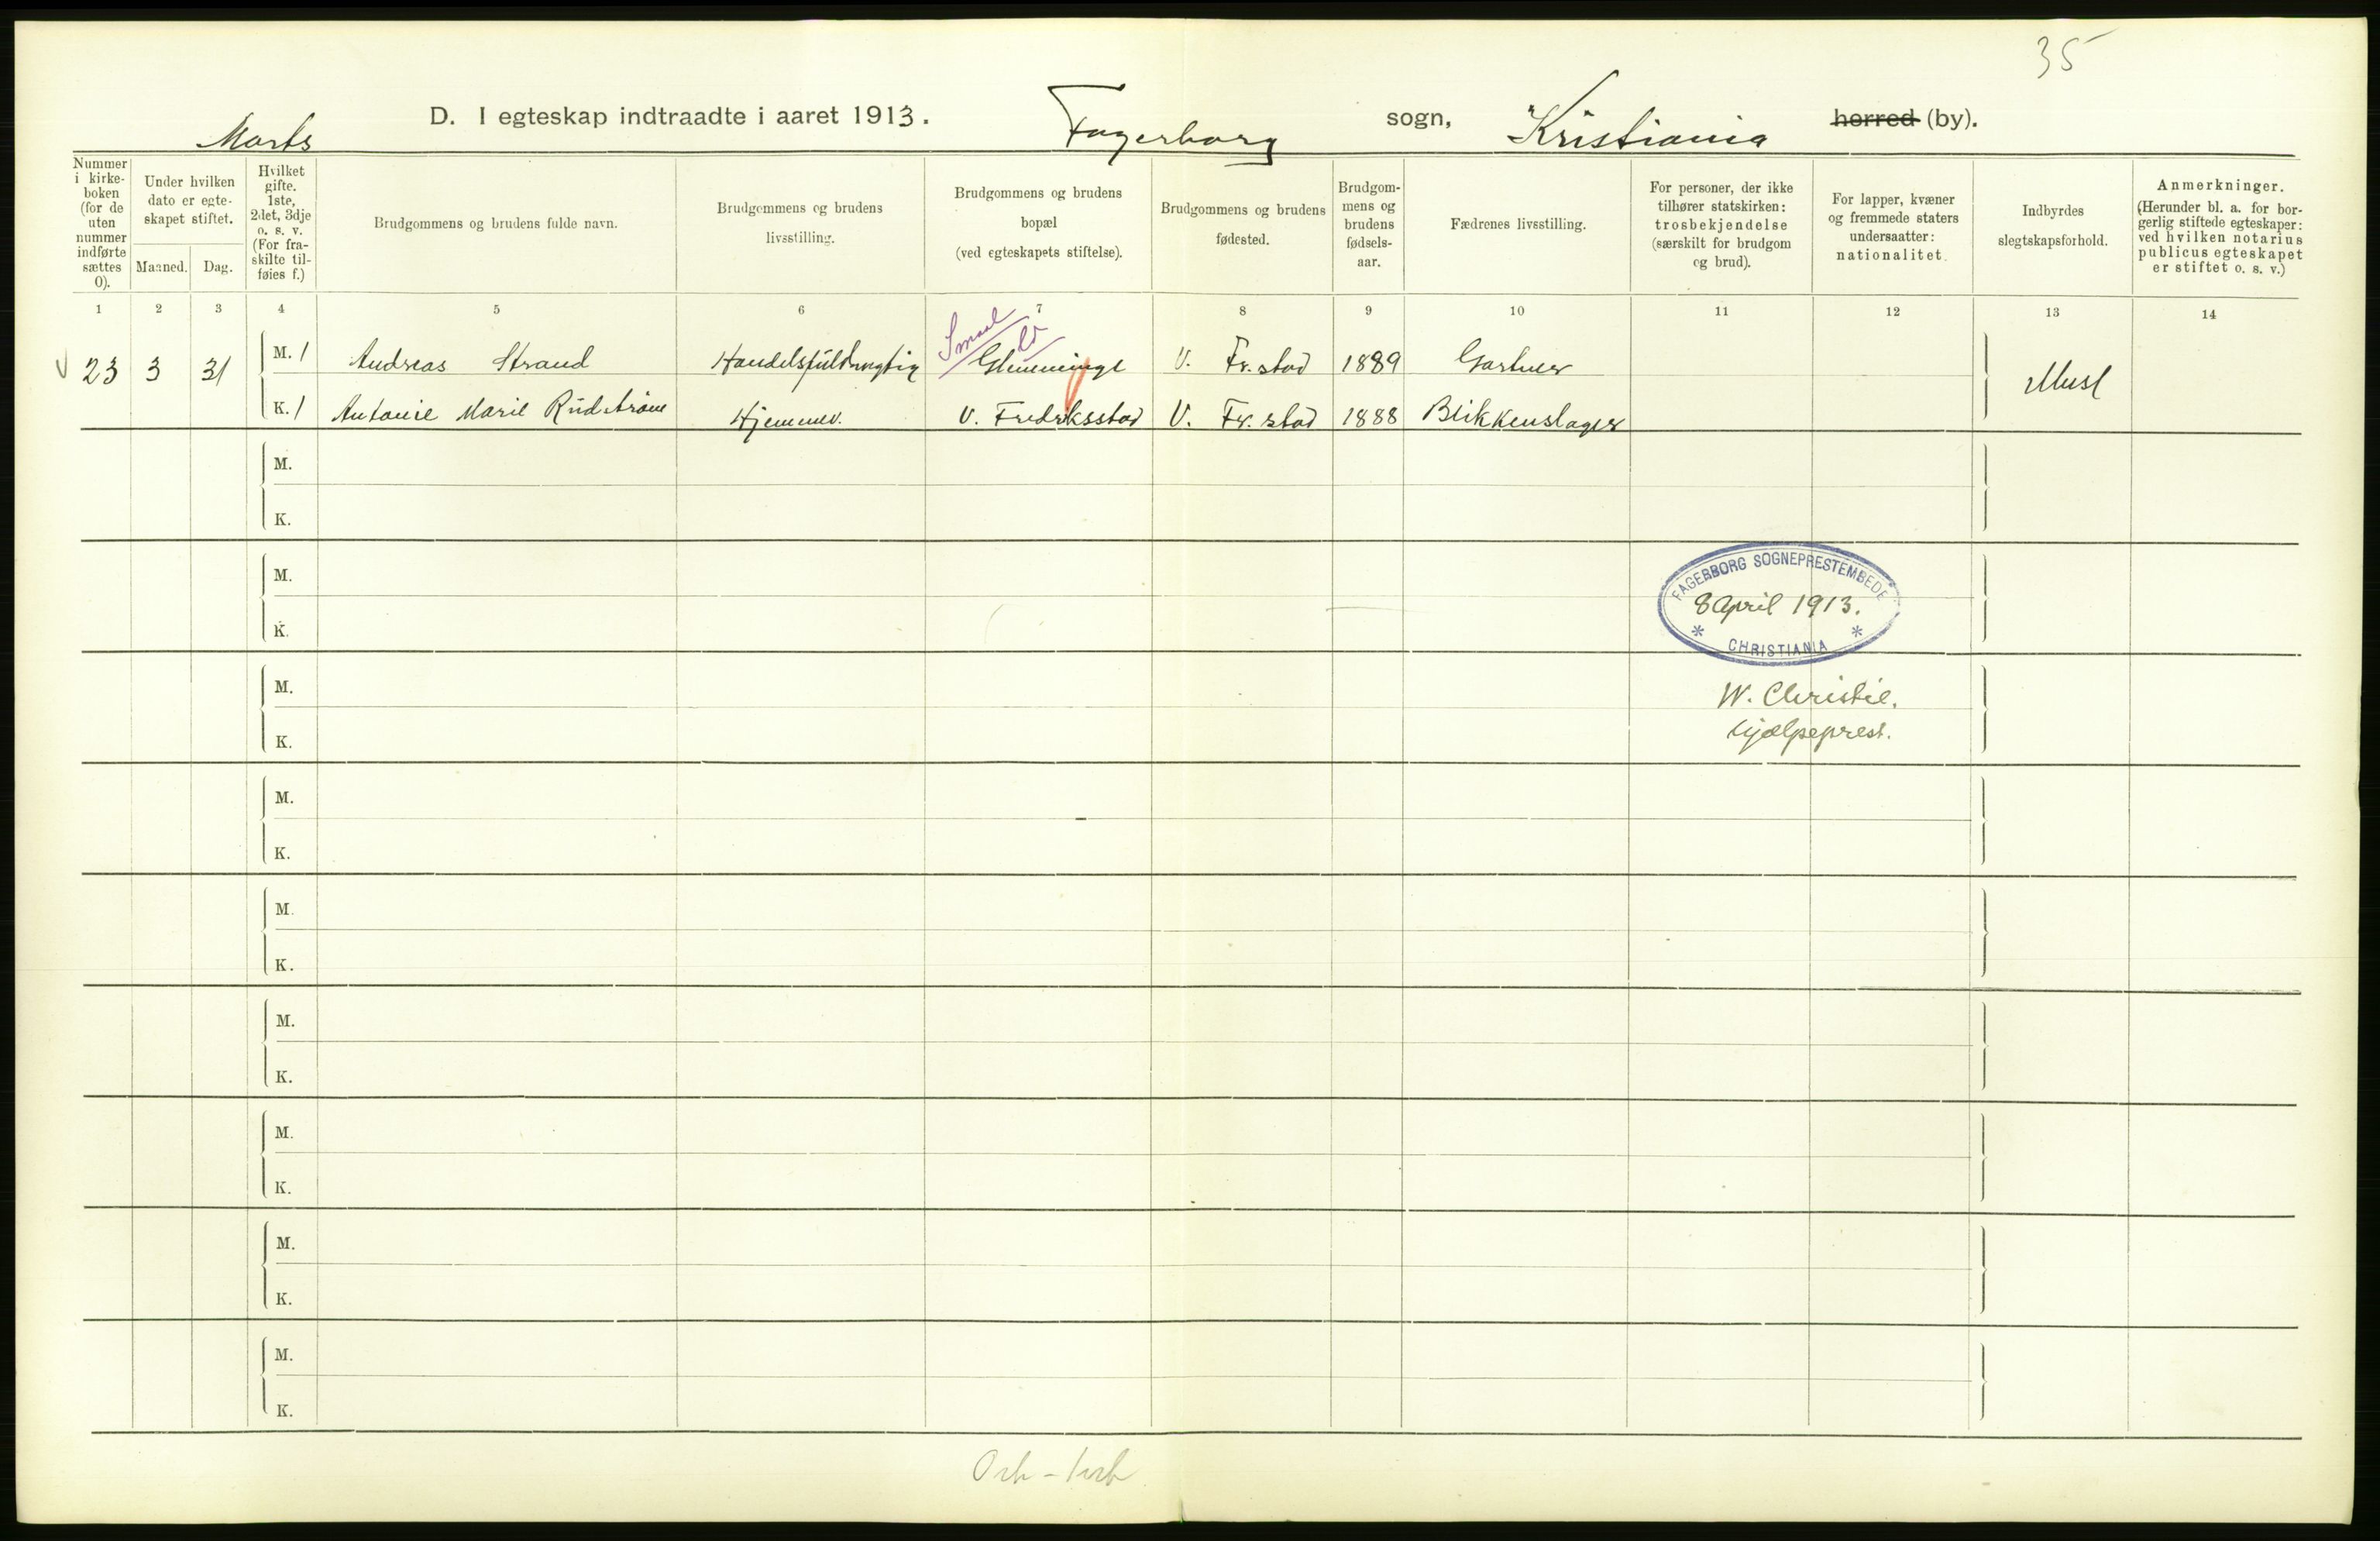 35
Marts D. I egteskap indtraadte i aaret 1913. Fagerborg sogn, Kristiania herred (by).
Nummer i kirkeboken (for de uten nummer indførte sættes 0).
Under hvilken dato er egteskapet stiftet.
Maaned. Dag.
Hvilket gifte. 1ste, 2det, 3dje o. s. v. (For fraskilte tilføies f.)
Brudgommens og brudens fulde navn.
Brudgommens og brudens livsstilling.
Brudgommens og brudens bopæl (ved egteskapets stiftelse).
Brudgommens og brudens fødested.
Brudgommens og brudens fødselsaar.
Fædrenes livsstilling.
For personer, der ikke tilhører statskirken: trosbekjendelse (særskilt for brudgom og brud).
For lapper, kvæner og fremmede staters undersaatter: nationalitet.
Indbyrdes slegtskapsforhold.
Anmerkninger. (Herunder bl. a. for borgerlig stiftede egteskaper: ved hvilken notarius publicus egteskapet er stiftet o. s. v.)
1 2 3 4 5 6 7 8 9 10 11 12 13 14
23 3 31 M. 1 Andreas Strand Handelsfuldmægtig Glemminge V. Fr.stad 1889 Gartner
K. 1 Antonie Marie Rudstrøm Hjemmev. V. Fredriksstad V. Fr. stad 1888 Blikkenslager
M.
K.
M.
K.
M.
K.
M.
K.
M.
K.
M.
K.
M.
K.
M.
K.
M.
K.
FAGERBORG SOGNEPRESTEMBEDE
8 April 1913.
* CHRISTIANIA *
W. Christie.
hjælpeprest.